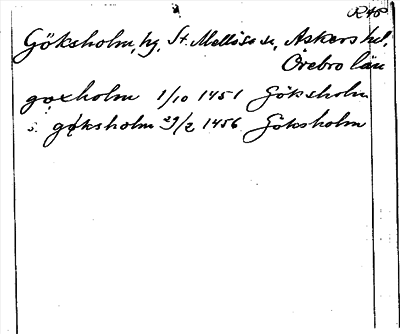 R48
Göksholm, hg, St. Mellösa sn, Askers hd,
Örebro län
gøxholm 1/10 1451 Göksholm
s. gøksholm 29/2 1456 Göksholm